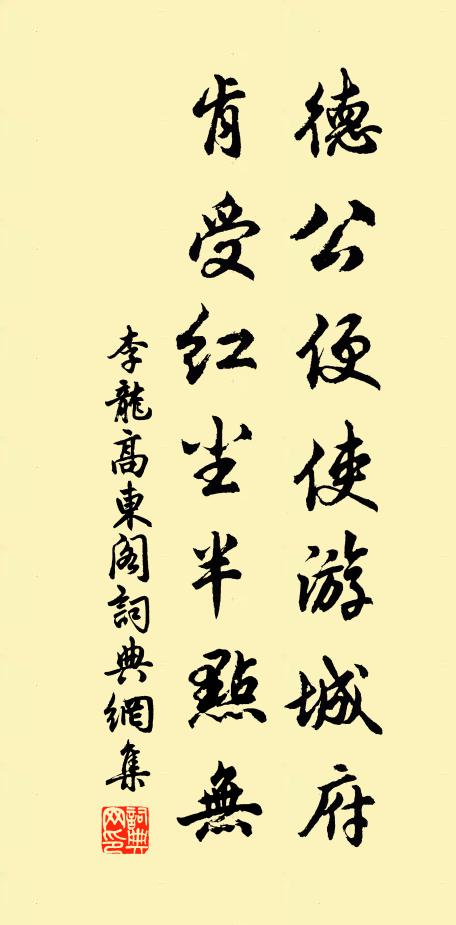 德公便使游城府
肯受红尘半點無
李龍高東閣詞典網集
詞典網印